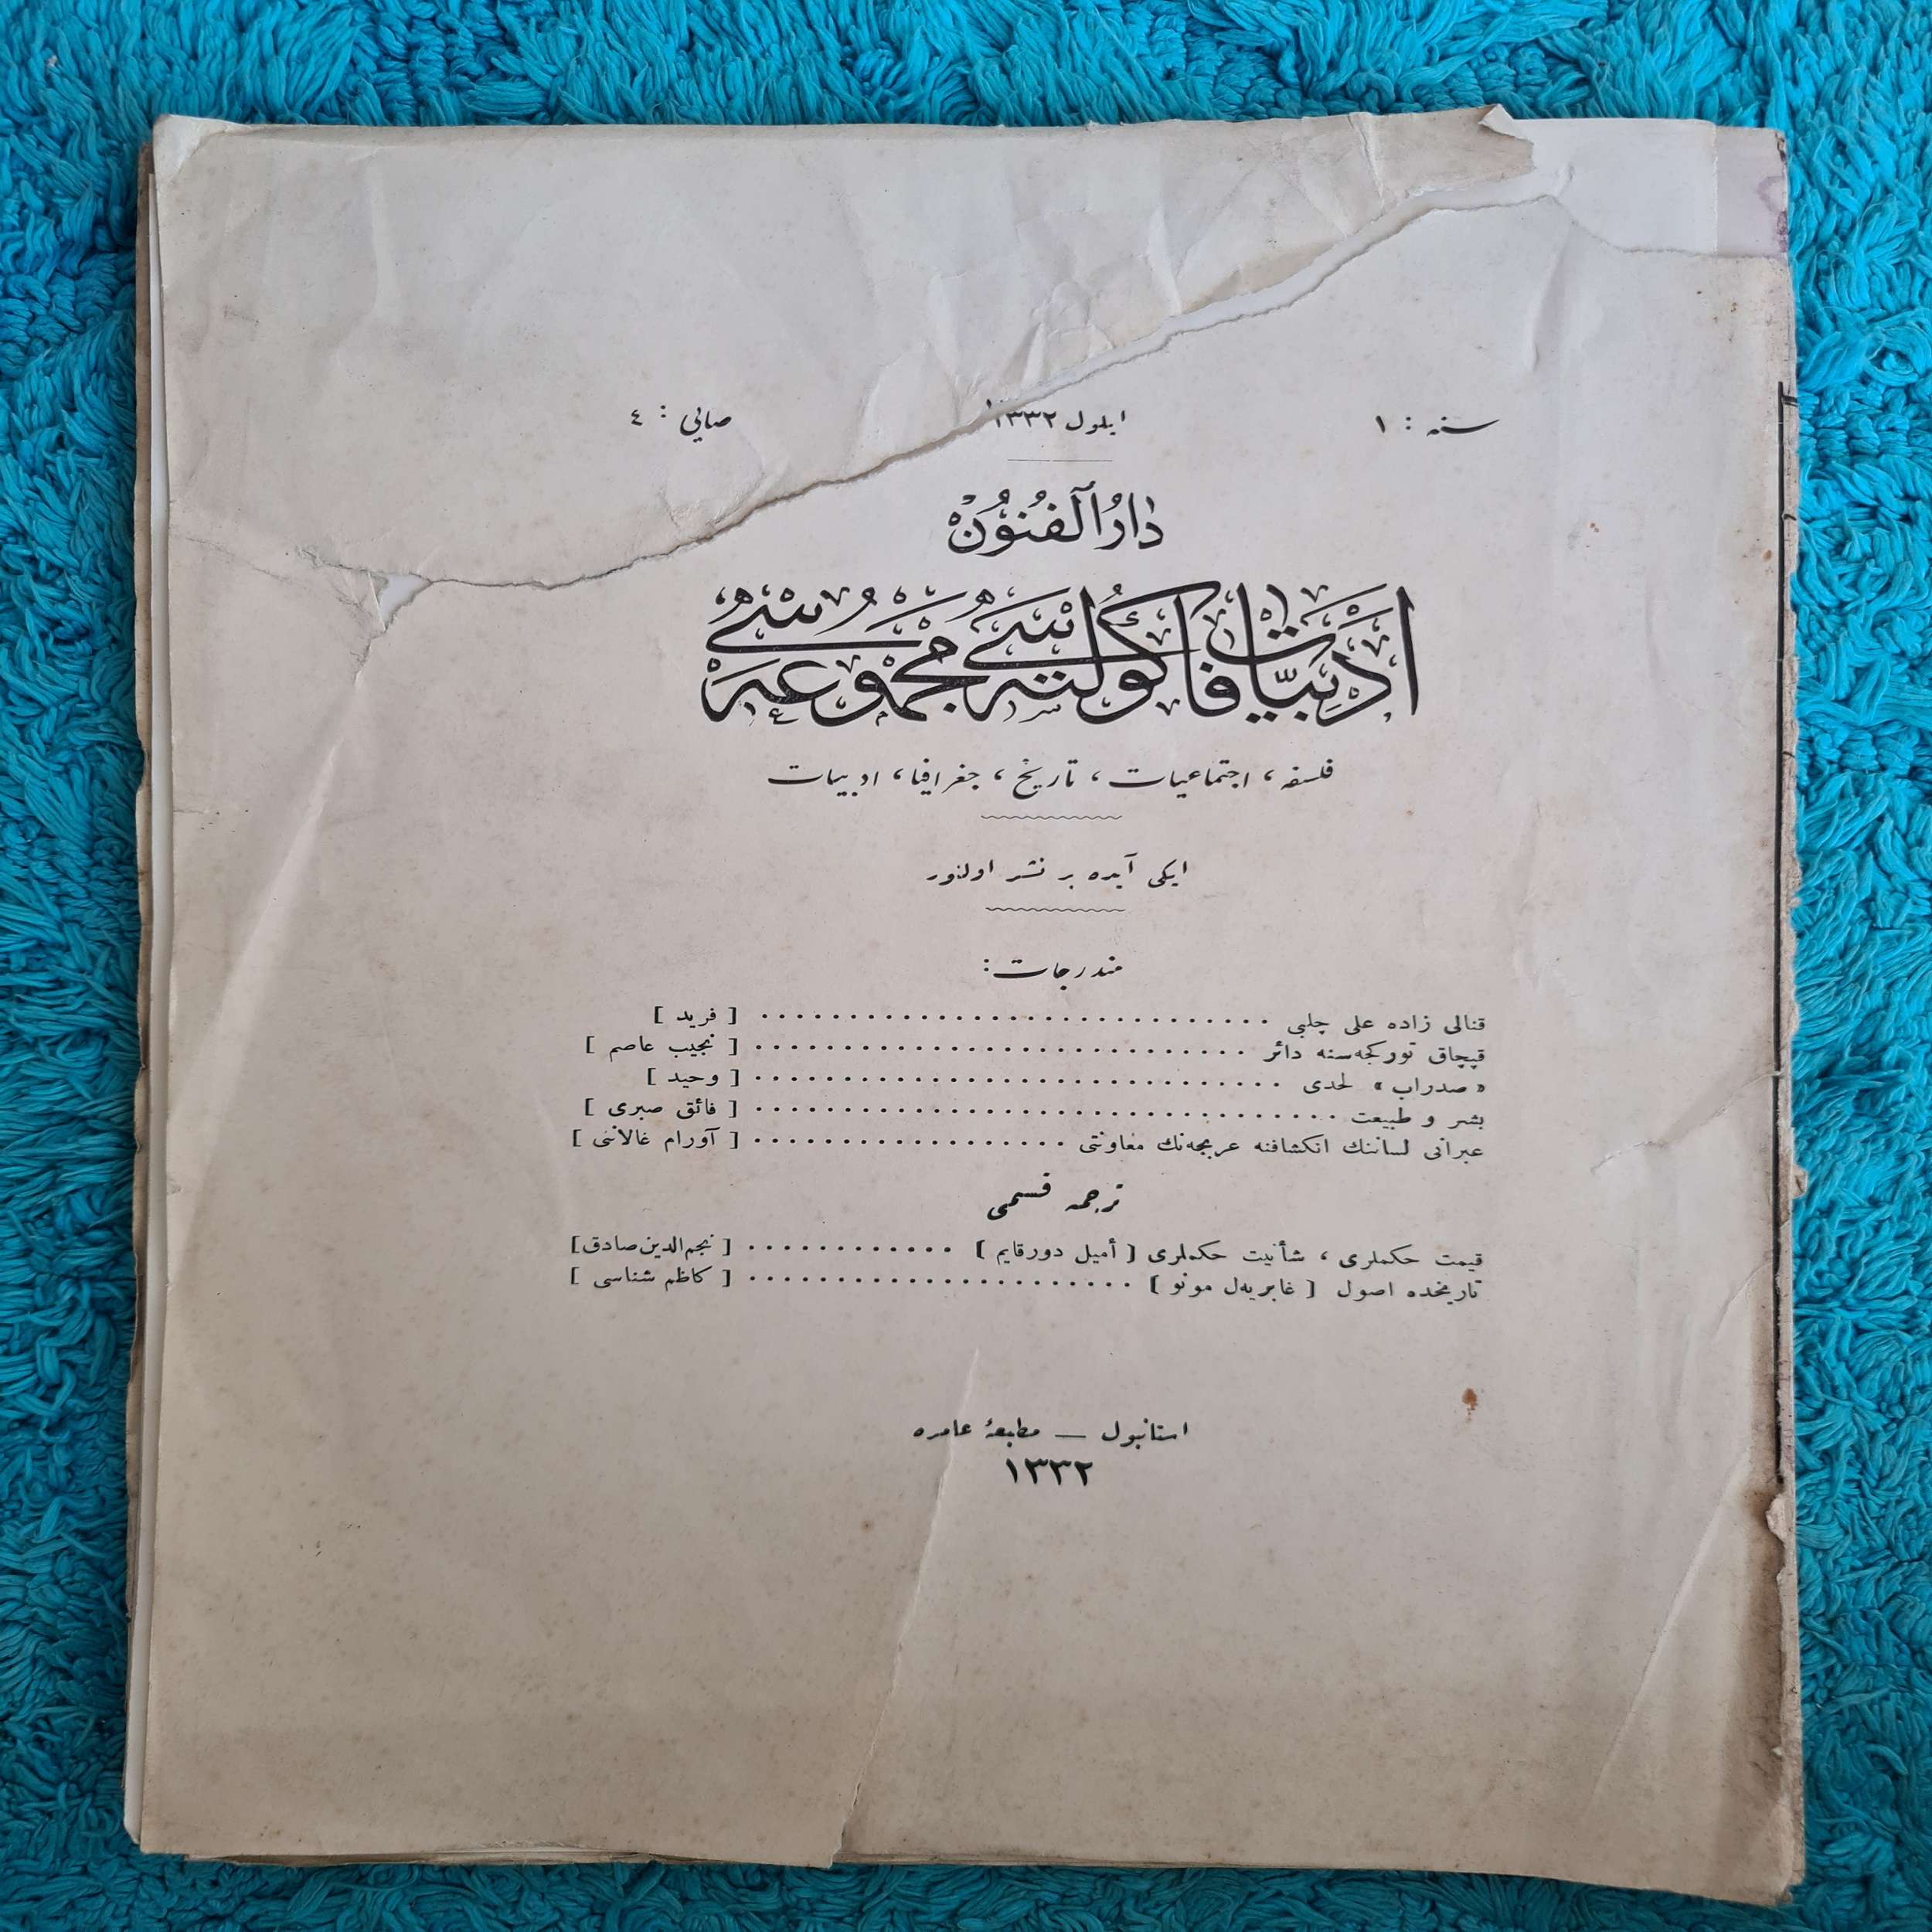 سنه : ١
ايلول ١٣٣٢
صايى : ٤
دَارُ الْفُنُون
ادبيات فاكولته سى مجموعه سى
فلسفه ، اجتماعيات ، تاريخ ، جغرافيا ، ادبيات
ايكى آيده بر نشر اولنور
مندرجات :
قنالى زاده على چلبى . . . . . . . . . . . . . . . . . . . . . . . . . . . . . [ فريد ]
قپچاق توركجه‌سنه دائر . . . . . . . . . . . . . . . . . . . . . . . . . . . . [ نجيب عاصم ]
« صدراب » لحدى . . . . . . . . . . . . . . . . . . . . . . . . . . . . . . [ وحيد ]
بشر و طبيعت . . . . . . . . . . . . . . . . . . . . . . . . . . . . . . . . . [ فائق صبرى ]
عبرانى لساننك انكشافنه عربجه‌نك معاونتى . . . . . . . . . . . . . . . . . . [ آورام غالانتى ]
ترجمه قسمى
قيمت حكملرى ، شأنيت حكملرى [ أميل دورقايم ] . . . . . . . . . . . . [ نجم‌الدين صادق ]
تاريخده اصول [ غابريه‌ل مونو ] . . . . . . . . . . . . . . . . . . . . . . [ كاظم شناسى ]
استانبول — مطبعهٔ عامره
١٣٣٢